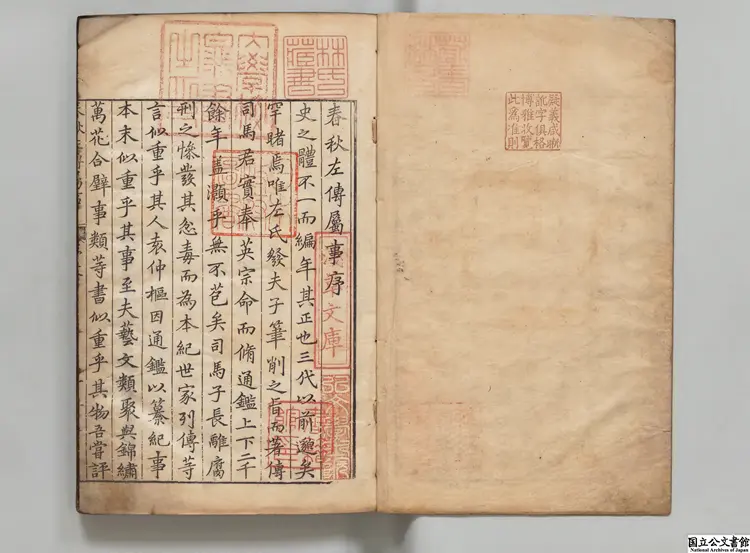 此為准則
春秋左傳屬事序
史之體不一而編年其正也三代以前邈矣
罕睹焉唯左氏發夫子筆削之旨而著傳
司馬君實奉 英宗命而脩通鑑上下二千
餘年蓋灝乎無不苞矣司馬子長離腐
刑之慘發其忿毒而為本紀世家列傳等
言似重乎其人袁仲樞因通鑑以纂紀事
本末似重乎其事至夫藝文類聚與錦繡
萬花合璧事類等書似重乎其物吾嘗評
林氏藏書
文庫
国立公文書館
National Archives of Japan